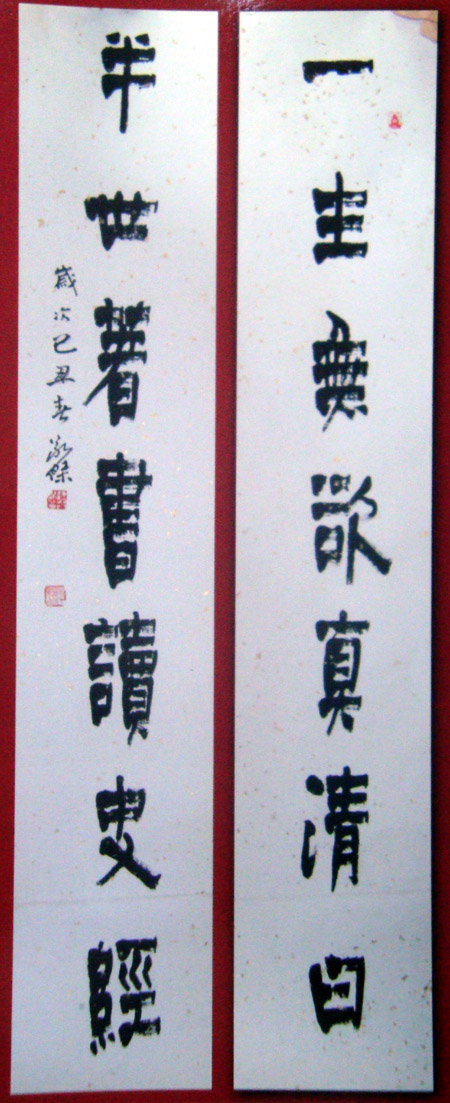 一生無欲真清白
半世著書讀史經
歲次己丑春